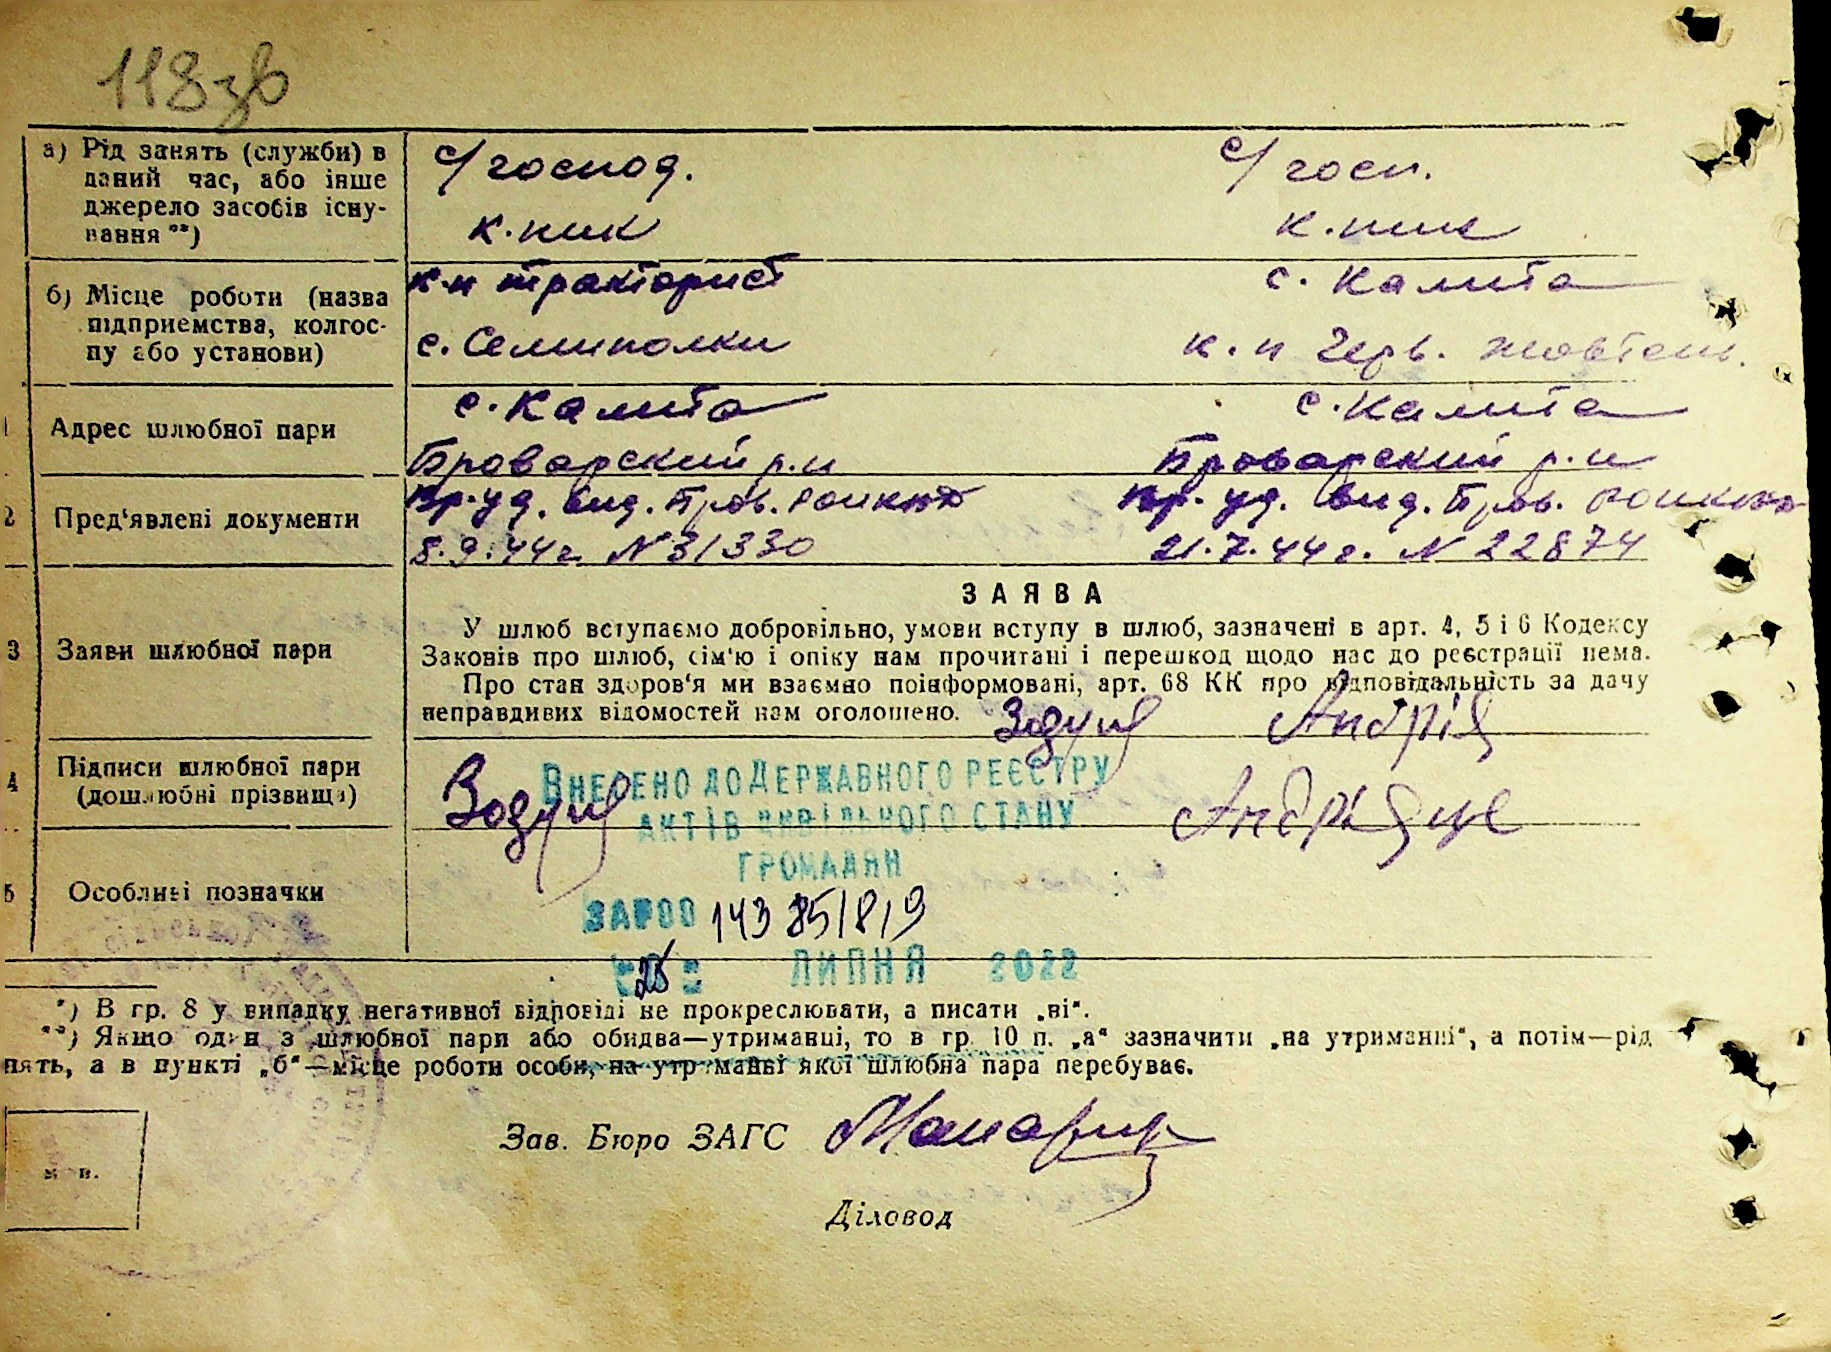 118зв
а) Рід занять (служби) в даний час, або інше джерело засобів існування **)
с/господ.
к.ник
с/госп.
к.ник
б) Місце роботи (назва підприємства, колгоспу або установи)
к-п тракторист
с. Семиполки
с. Калита
к.п Черв. Жовтень.
1 Адрес шлюбної пари
с. Калита
Броварский р.н
с. Калита
Броварский р.н
2 Пред‘явлені документи
Вр. уд. вид. Бров.
8.9.44г. N 31330
Вр. уд. вид. Бров.
21.7.44г. N 22874
3 Заяви шлюбної пари
ЗАЯВА
У шлюб вступаємо добровільно, умови вступу в шлюб, зазначені в арт. 4, 5 і 6 Кодексу
Законів про шлюб, сім‘ю і опіку нам прочитані і перешкод щодо нас до реєстрації нема.
Про стан здоров‘я ми взаємно поінформовані, арт. 68 КК про відповідальність за дачу
неправдивих відомостей нам оголошено.
4 Підписи шлюбної пари
(дошлюбні прізвища)
ВНЕСЕНО ДО ДЕРЖАВНОГО РЕЄСТРУ
АКТІВ ЦИВІЛЬНОГО СТАНУ
ГРОМАДЯН
5 Особливі позначки
ЗА №00 143 85/819
25 ЛИПНЯ 2022
*) В гр. 8 у випадку негативної відповіді не прокреслювати, а писати „ні“.
**) Якщо один з шлюбної пари або обидва—утриманці, то в гр. 10 п. „а“ зазначити „на утриманні“, а потім—рід
нять, а в пункті „б“—місце роботи особи, на утриманні якої шлюбна пара перебуває.
Зав. Бюро ЗАГС
м. п.
Діловод